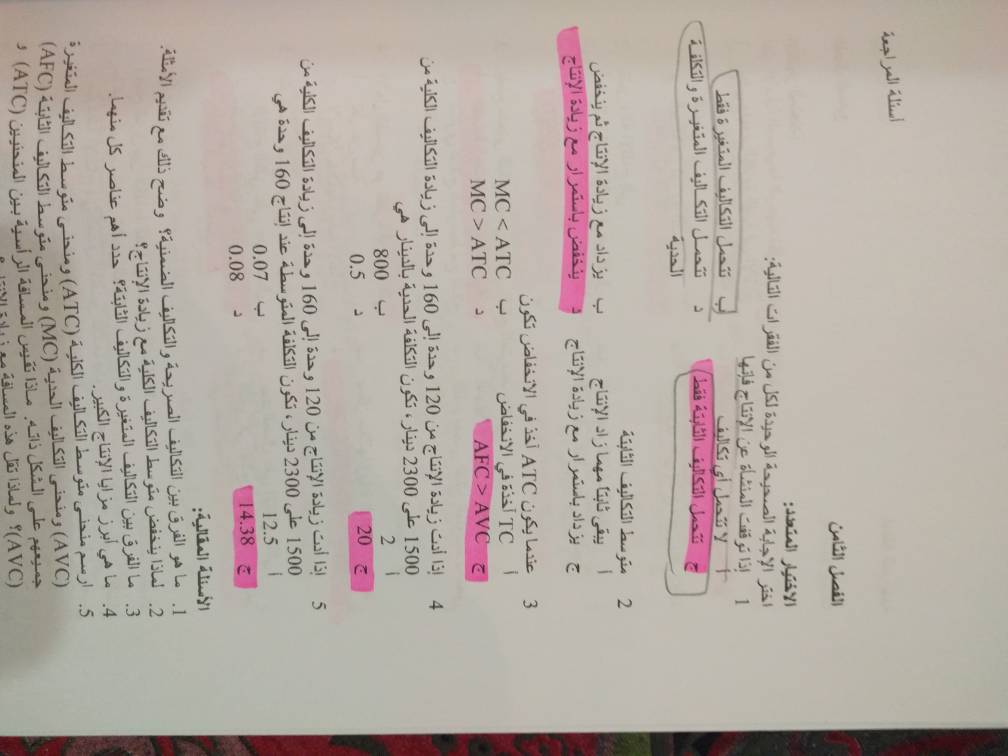 أسئلة المراجعة
الفصل الثامن
الاختيار المتعدد:
اختر الإجابة الصحيحة الوحيدة لكل من الفقرات التالية:
1 إذا توقفت المنشأة عن الإنتاج فإنها
أ لا تتحمل أي تكاليف ب تتحمل التكاليف المتغيرة فقط
ج تتحمل التكاليف الثابتة فقط د تتحمل التكاليف المتغيرة والتكلفة
الحدية
2 متوسط التكاليف الثابتة
أ يبقى ثابتا مهما زاد الإنتاج ب يزداد مع زيادة الإنتاج ثم ينخفض
ج يزداد باستمرار مع زيادة الإنتاج د ينخفض باستمرار مع زيادة الإنتاج
3 عندما يكون ATC آخذ في الانخفاض تكون
أ TC آخذة في الانخفاض ب MC < ATC
ج AFC > AVC د MC > ATC
4 إذا أدت زيادة الإنتاج من 120 وحدة إلى 160 وحدة إلى زيادة التكاليف الكلية من
1500 على 2300 دينار، تكون التكلفة الحدية بالدينار هي
أ 2 ب 800
ج 20 د 0.5
5 إذا أدت زيادة الإنتاج من 120 وحدة إلى 160 وحدة إلى زيادة التكاليف الكلية من
1500 على 2300 دينار، تكون التكلفة المتوسطة عند إنتاج 160 وحدة هي
أ 12.5 ب 0.07
ج 14.38 د 0.08
الأسئلة المقالية:
1. ما هو الفرق بين التكاليف الصريحة والتكاليف الضمنية؟ وضح ذلك مع تقديم الأمثلة.
2. لماذا ينخفض متوسط التكاليف الكلية مع زيادة الإنتاج؟
3. ما الفرق بين التكاليف المتغيرة والتكاليف الثابتة؟ حدد أهم عناصر كل منهما.
4. ما هي أبرز مزايا الإنتاج الكبير.
5. ارسم منحنى متوسط التكاليف الكلية (ATC) ومنحنى متوسط التكاليف المتغيرة
(AVC) ومنحنى التكاليف الحدية (MC) ومنحنى متوسط التكاليف الثابتة (AFC)
جميعهم على الشكل ذاته. ماذا تقيس المسافة الرأسية بين المنحنيين (ATC) و
(AVC)؟ ولماذا تقل هذه المسافة مع زيادة